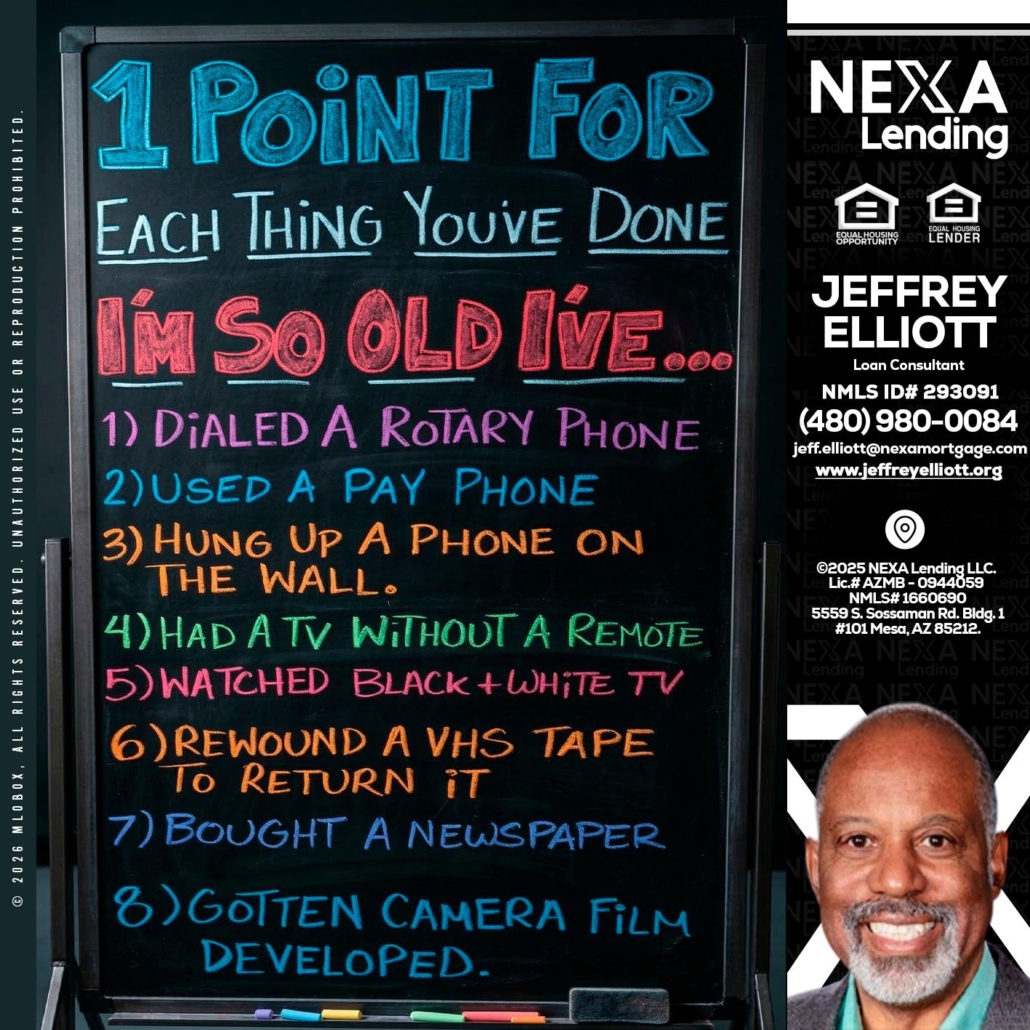 © 2026 MLOBOX, ALL RIGHTS RESERVED. UNAUTHORIZED USE OR REPRODUCTION PROHIBITED.
1 POiNT FOR
EACH THING YOU'VE DONE
I'M SO OLD I'VE...
1) DiALED A ROTARY PHONE
2) USED A PAY PHONE
3) HUNG UP A PHONE ON
THE WALL.
4) HAD A TV WiTHOUT A REMOTE
5) WATCHED BLACK + WHiTE TV
6) REWOUND A VHS TAPE
TO RETURN iT
7) BOUGHT A NEWSPAPER
8) GOTTEN CAMERA FiLM
DEVELOPED.
NEXA
Lending
EQUAL HOUSING
OPPORTUNITY
EQUAL HOUSING
LENDER
JEFFREY
ELLIOTT
Loan Consultant
NMLS ID# 293091
(480) 980-0084
jeff.elliott@nexamortgage.com
www.jeffreyelliott.org
©2025 NEXA Lending LLC.
Lic.# AZMB - 0944059
NMLS# 1660690
5559 S. Sossaman Rd. Bldg. 1
#101 Mesa, AZ 85212.